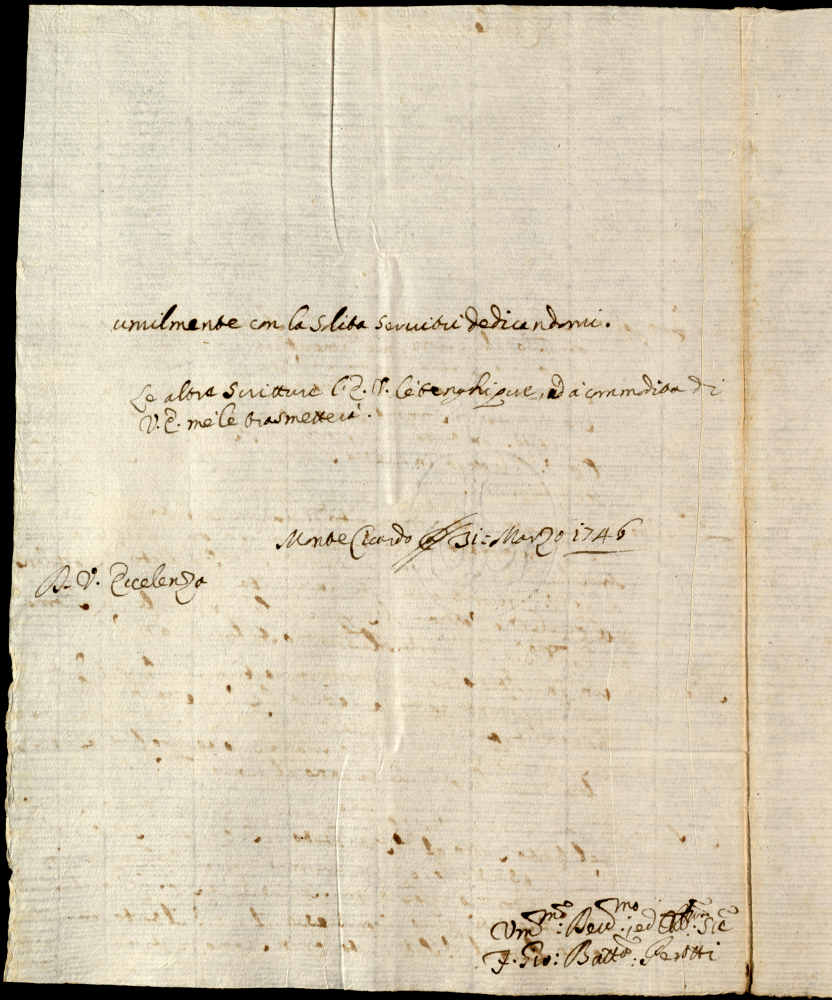 umilmente con la solita servitù dedicandomi.
Le altre Scritture l'E. V. le tenghi pure, ed à commodità di
V. E. me le trasmetterà.
Monte Cicardo 31: Marzo 1746
D. V. Eccelenza
Um.mo: Dev.mo: ed Obb.mo
F. Gio: Batta: Perotti